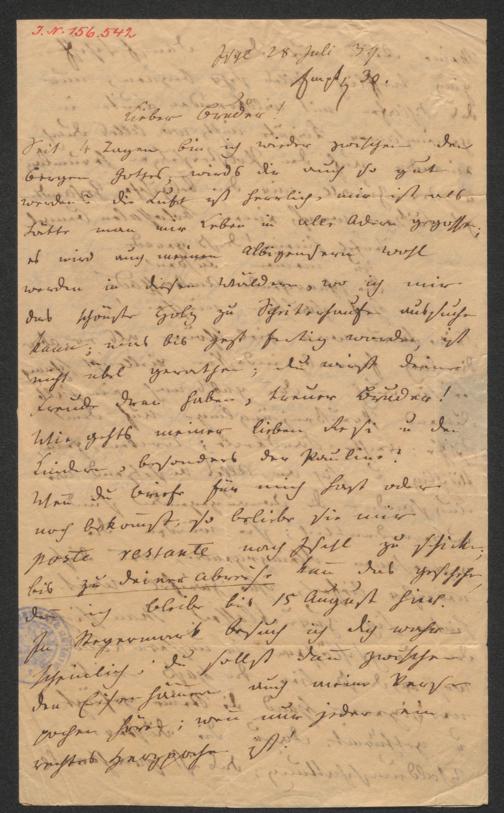 I.N. 156.542
Ischl 28. Juli 39.
Empf. 30.
Lieber Bruder!
Seit 4 Tagen bin ich wieder zwischen den
Bergen Gottes, wird's dir auch so gut
werden? die Luft ist herrlich, mir ist als
hätte man mir Leben in alle Adern gegossen;
es wird auch meinen Albigensern wohl
werden in diesen Wäldern, wo ich mir
das schönste Holz zu Scheiterhaufen aussuchen
kann; was bis jetzt fertig worden, ist
nicht übel gerathen; du wirst deine
Freude dran haben, treuer Bruder!
Wie gehts meiner lieben Resi u den
Kindern, besonders der Pauline?
Wen̄ du Briefe für mich hast oder
noch bekommst, so beliebe sie mir
poste restante nach Ischl zu schicken;
bis zu deiner Abreise kan̄ das geschehen,
den̄ ich bleibe bis 15 August hier.
In Steyermark besuch ich dich wahr-
scheinlich; du sollst dan̄ zwischen
den Eisenhämmern auch meine Verse
pochen hören; wen̄ nur jeder ein
rechtes Herzpochen ist!